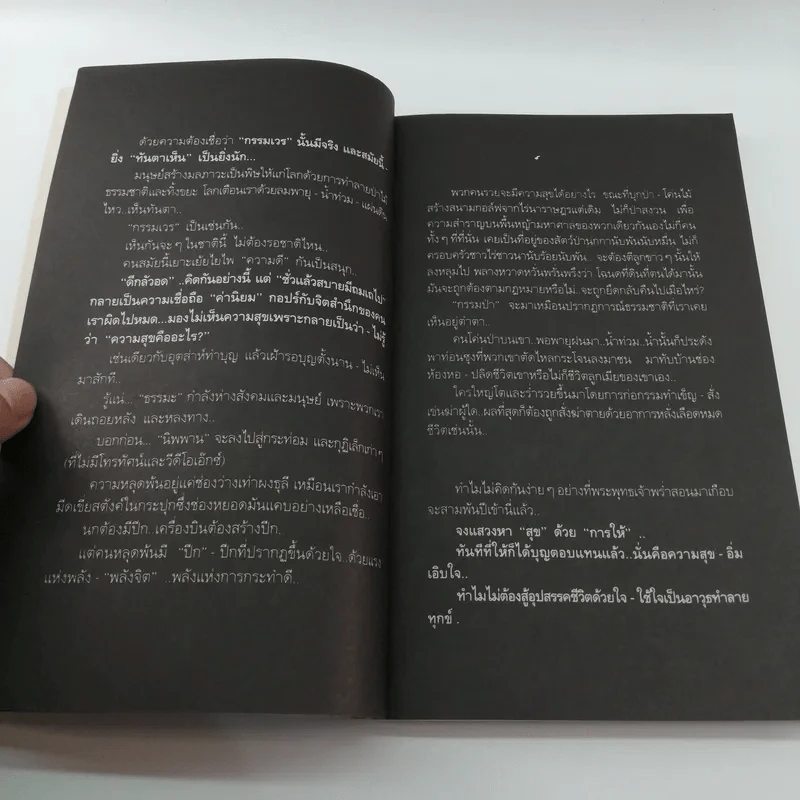 ด้วยความต้องเชื่อว่า "กรรมเวร" นั้นมีจริง และสมัยนี้..
ยิ่ง "ทันตาเห็น" เป็นยิ่งนัก...
มนุษย์สร้างมลภาวะเป็นพิษให้แก่โลกด้วยการทำลายป่าไม้
ธรรมชาติและทิ้งขยะ โลกเตือนเราด้วยลมพายุ - น้ำท่วม - แผ่นดิน
ไหว..เห็นทันตา..
"กรรมเวร" เป็นเช่นกัน..
เห็นกันจะๆในชาตินี้ ไม่ต้องรอชาติไหน..
คนสมัยนี้เยาะเย้ยไยไพ "ความดี" กันเป็นสนุก..
"ดีกลัวอด" ..คิดกันอย่างนี้ แต่ "ชั่วแล้วสบายมีถมเถไป"
กลายเป็นความเชื่อถือ "ค่านิยม" กอปร์กับจิตสำนึกของคน
เราผิดไปหมด...มองไม่เห็นความสุขเพราะกลายเป็นว่า - ไม่รู้
ว่า "ความสุขคืออะไร?"
เช่นเดียวกับอุตส่าห์ทำบุญ แล้วเฝ้ารอบุญตั้งนาน - ไม่เห็น
มาสักที..
รู้แน่... "ธรรมะ" กำลังห่างสังคมและมนุษย์ เพราะพวกเรา
เดินถอยหลัง และหลงทาง..
บอกก่อน... "นิพพาน" จะลงไปสู่กระท่อม และกุฏิเล็กเก่าๆ
(ที่ไม่มีโทรทัศน์และวีดีโอเอ็กซ์)
ความหลุดพ้นอยู่แค่ช่องว่างเท่าผงธุลี เหมือนเรากำลังเอา
มีดเขี่ยสตังค์ในกระปุกซึ่งช่องหยอดมันแคบอย่างเหลือเชื่อ..
นกต้องมีปีก..เครื่องบินต้องสร้างปีก..
แต่คนหลุดพ้นมี "ปีก" - ปีกที่ปรากฏขึ้นด้วยใจ..ด้วยแรง
แห่งพลัง - "พลังจิต" ..พลังแห่งการกระทำดี..
พวกคนรวยจะมีความสุขได้อย่างไร ขณะที่บุกป่า - โค่นไม้
สร้างสนามกอล์ฟจากไร่นาราษฎรแต่เดิม ไม่ก็ป่าสงวน เพื่อ
ความสำราญบนพื้นหญ้ามหาศาลของพวกเดียวกันเองไม่กี่คน
ทั้งๆที่ที่นั่น เคยเป็นที่อยู่ของสัตว์ป่านกกานับพันนับหมื่น ไม่ก็
ครอบครัวชาวไร่ชาวนานับร้อยนับพัน.. จะต้องตีลูกขาวๆนั้นให้
ลงหลุมไป พลางหวาดหวั่นพรั่นพรึงว่า โฉนดที่ดินที่ตนได้มานั้น
มันจะถูกต้องตามกฎหมายหรือไม่..จะถูกยึดกลับคืนไปเมื่อไหร่?
"กรรมป่า" จะมาเหมือนปรากฏการณ์ธรรมชาติที่เราเคย
เห็นอยู่ตำตา..
คนโค่นป่าบนเขา..พอพายุฝนมา..น้ำท่วม..น้ำนั้นก็ประดัง
พาท่อนซุงที่พวกเขาตัดไหลกระโจนลงมาชน มาทับบ้านช่อง
ห้องหอ - ปลิดชีวิตเขาหรือไม่ก็ชีวิตลูกเมียของเขาเอง..
ใครใหญ่โตและร่ำรวยขึ้นมาโดยการก่อกรรมทำเข็ญ - สั่ง
เช่นฆ่าผู้ใด..ผลที่สุดก็ต้องถูกสั่งฆ่าตายด้วยอาการหลั่งเลือดหมด
ชีวิตเช่นนั้น..
ทำไมไม่คิดกันง่ายๆอย่างที่พระพุทธเจ้าพร่ำสอนมาเกือบ
จะสามพันปีเข้านี้แล้ว..
จงแสวงหา "สุข" ด้วย "การให้" ..
ทันทีที่ให้ก็ได้บุญตอบแทนแล้ว..นั่นคือความสุข - อิ่ม
เอิบใจ..
ทำไมไม่ต้องสู้อุปสรรคชีวิตด้วยใจ - ใช้ใจเป็นอาวุธทำลาย
ทุกข์ .